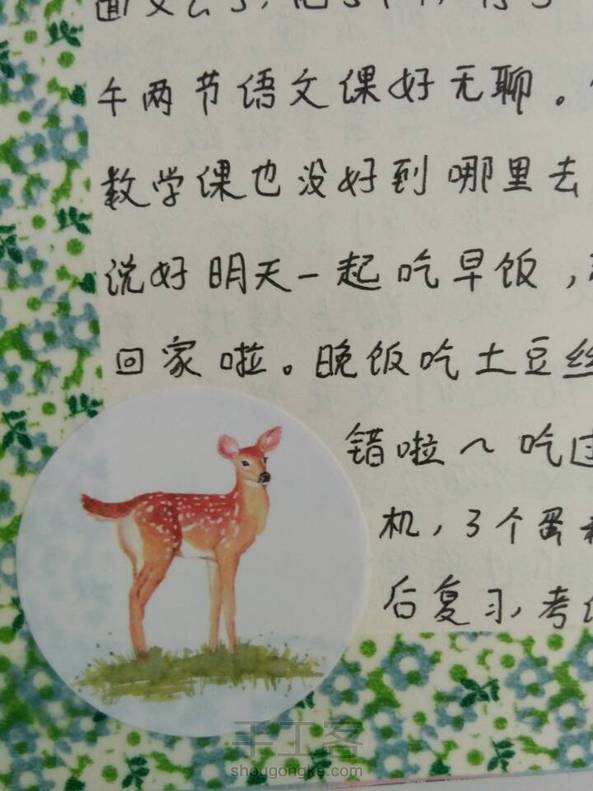 午两节语文课好无聊。
数学课也没好到哪里去
说好明天一起吃早饭，
回家啦。晚饭吃土豆丝
错啦～吃过
机，3个蛋
后复习，考
手工客
shougongke.com